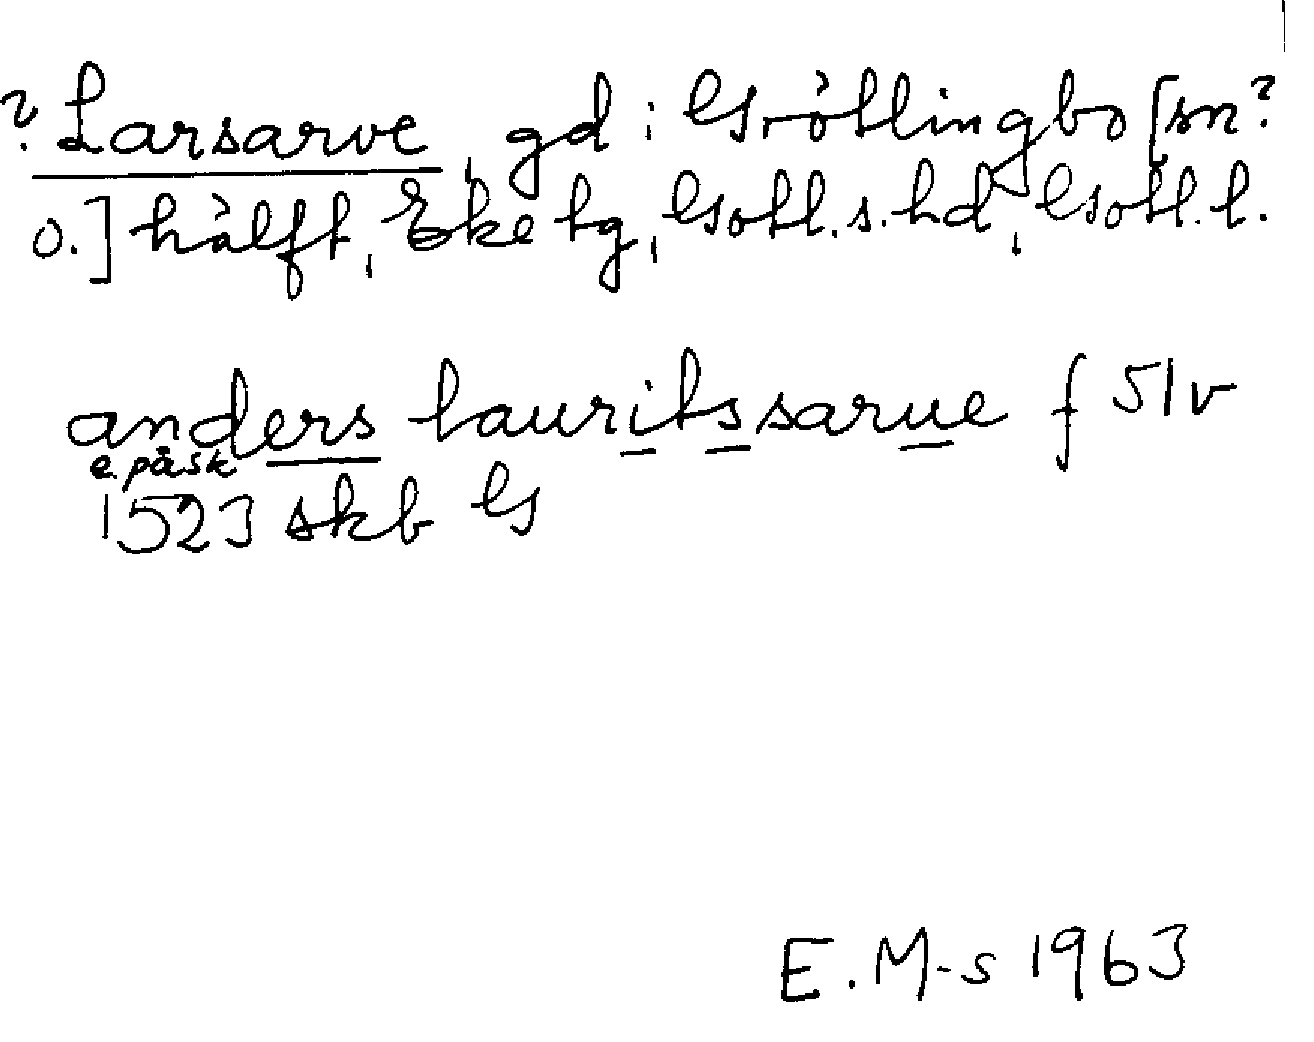 ? Larsarve, gd i Grötlingbo [sn?
o.] hälft, Eke tg, Gotl. s. hd, Gotl. l.
anders lauritssarue f 51v
e. påsk
1523 skb G
E. M-s 1963